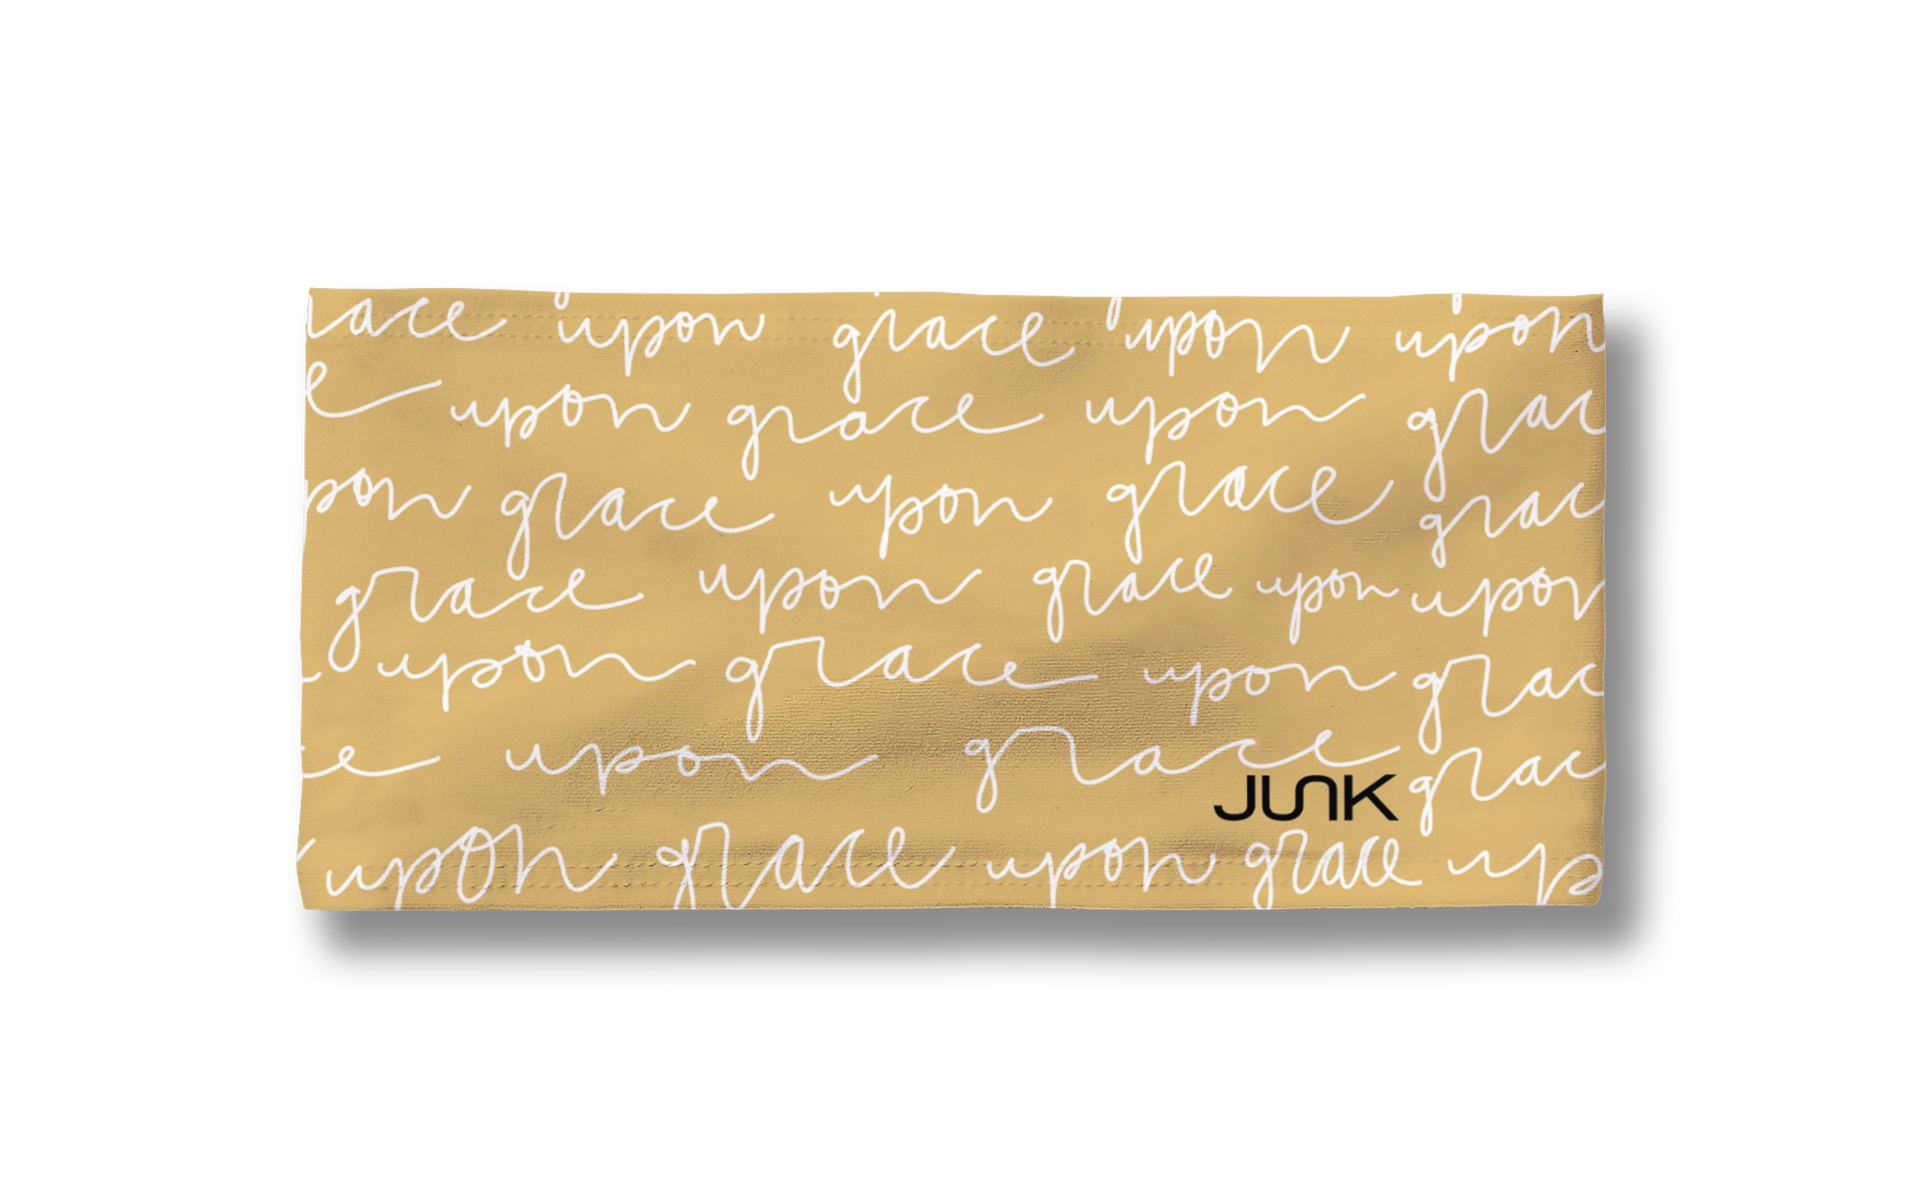 grace upon grace upon upon
e upon grace upon grac
pon grace upon grace grac
grace upon grace upon upon
upon grace upon grac
ce upon grace grac
JUNK
upon grace upon grace up